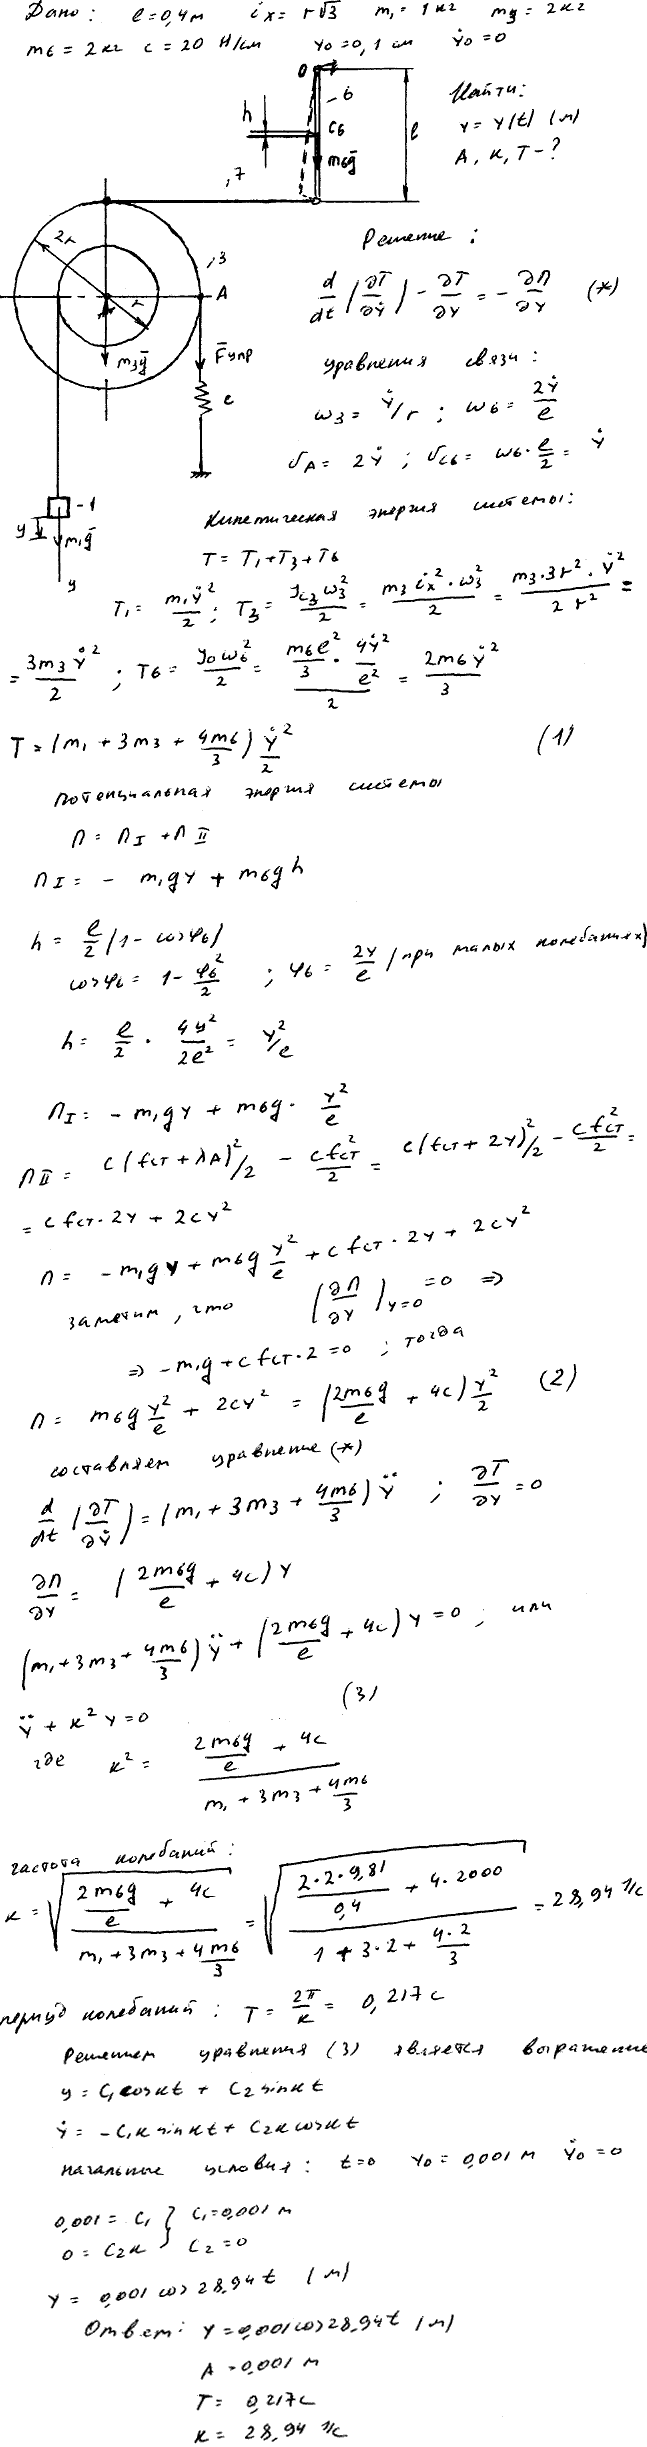 Дано: l=0,4м ix= r√3 m₁=1кг m₃=2кг
m₆=2кг c=20 Н/см y₀=0,1 см ẏ₀=0
O
-6
Найти:
h
C₆
l
y=y(t) (м)
m₆g̅
A, к, T-?
,7
2r
Решение:
,3
r
A
d/dt (∂T/∂ẏ) - ∂T/∂y = - ∂П/∂y (*)
m₃g̅
F̅упр
уравнения связи:
c
ω₃= ẏ/r ; ω₆= 2ẏ/l
υA= 2ẏ ; υC₆= ω₆·l/2= ẏ
-1
y
Кинетическая энергия системы:
m₁g̅
T= T₁+T₃+T₆
y
T₁= m₁ẏ²/2 ; T₃= JC₃ω₃²/2 = m₃ix²·ω₃²/2 = m₃·3r²·ẏ²/2r² =
= 3m₃ẏ²/2 ; T₆= J₀ω₆²/2 = (m₆l²/3 · 4ẏ²/l²)/2 = 2m₆ẏ²/3
T= (m₁+3m₃+4m₆/3) ẏ²/2 (1)
потенциальная энергия системы
П= ПI + ПII
ПI= - m₁gy + m₆gh
h= l/2 (1-cosφ₆)
cosφ₆= 1- φ₆²/2 ; φ₆= 2y/l (при малых колебаниях)
h= l/2 · 4y²/2l² = y²/l
ПI= -m₁gy + m₆g· y²/l
ПII= c(fст+λA)²/2 - cfст²/2 = c(fст+2y)²/2 - cfст²/2 =
= cfст·2y + 2cy²
П= -m₁gy + m₆g y²/l + cfст·2y + 2cy²
заметим, что (∂П/∂y)y=0 =0 ⇒
⇒ -m₁g+cfст·2=0 ; тогда
П= m₆g y²/l + 2cy² = (2m₆g/l + 4c) y²/2 (2)
составляем уравнение (*)
d/dt (∂T/∂ẏ) = (m₁+3m₃+4m₆/3) ÿ ; ∂T/∂y =0
∂П/∂y = (2m₆g/l + 4c) y
(m₁+3m₃+4m₆/3) ÿ + (2m₆g/l + 4c) y=0 ; или
ÿ + к²y=0 (3)
где к²= (2m₆g/l + 4c)/(m₁+3m₃+4m₆/3)
частота колебаний:
к= √((2m₆g/l + 4c)/(m₁+3m₃+4m₆/3)) = √((2·2·9,81/0,4 + 4·2000)/(1+3·2+4·2/3)) = 28,94 1/с
период колебаний: T= 2π/к = 0,217с
Решением уравнения (3) является выражение
y= C₁cosкt + C₂sinкt
ẏ= -C₁кsinкt+ C₂кcosкt
начальные условия: t=0 y₀=0,001м ẏ₀=0
0,001= C₁ } C₁=0,001м
0= C₂к } C₂=0
y= 0,001cos28,94t (м)
Ответ: y=0,001cos28,94t (м)
A=0,001м
T= 0,217с
к= 28,94 1/с